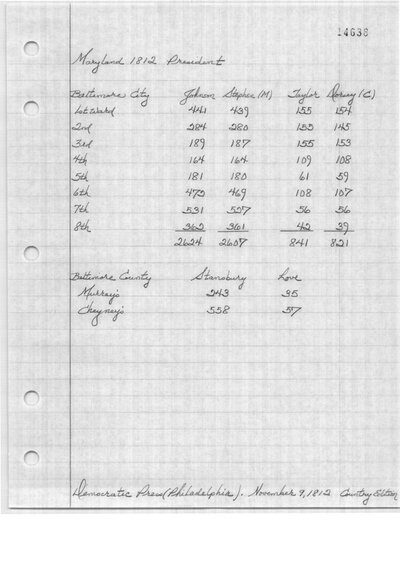 14638
Maryland 1812 President
Baltimore City Johnson Stephen (M) Taylor Dorsey (C)
1st Ward 441 439 155 154
2nd 284 280 155 145
3rd 189 187 155 153
4th 164 164 109 108
5th 181 180 61 59
6th 472 469 108 107
7th 531 527 56 56
8th 362 361 42 39
2624 2607 841 821
Baltimore County Stansbury Love
Murray's 243 35
Chaynay's 558 57
Democratic Press (Philadelphia). November 9, 1812 Country Edition